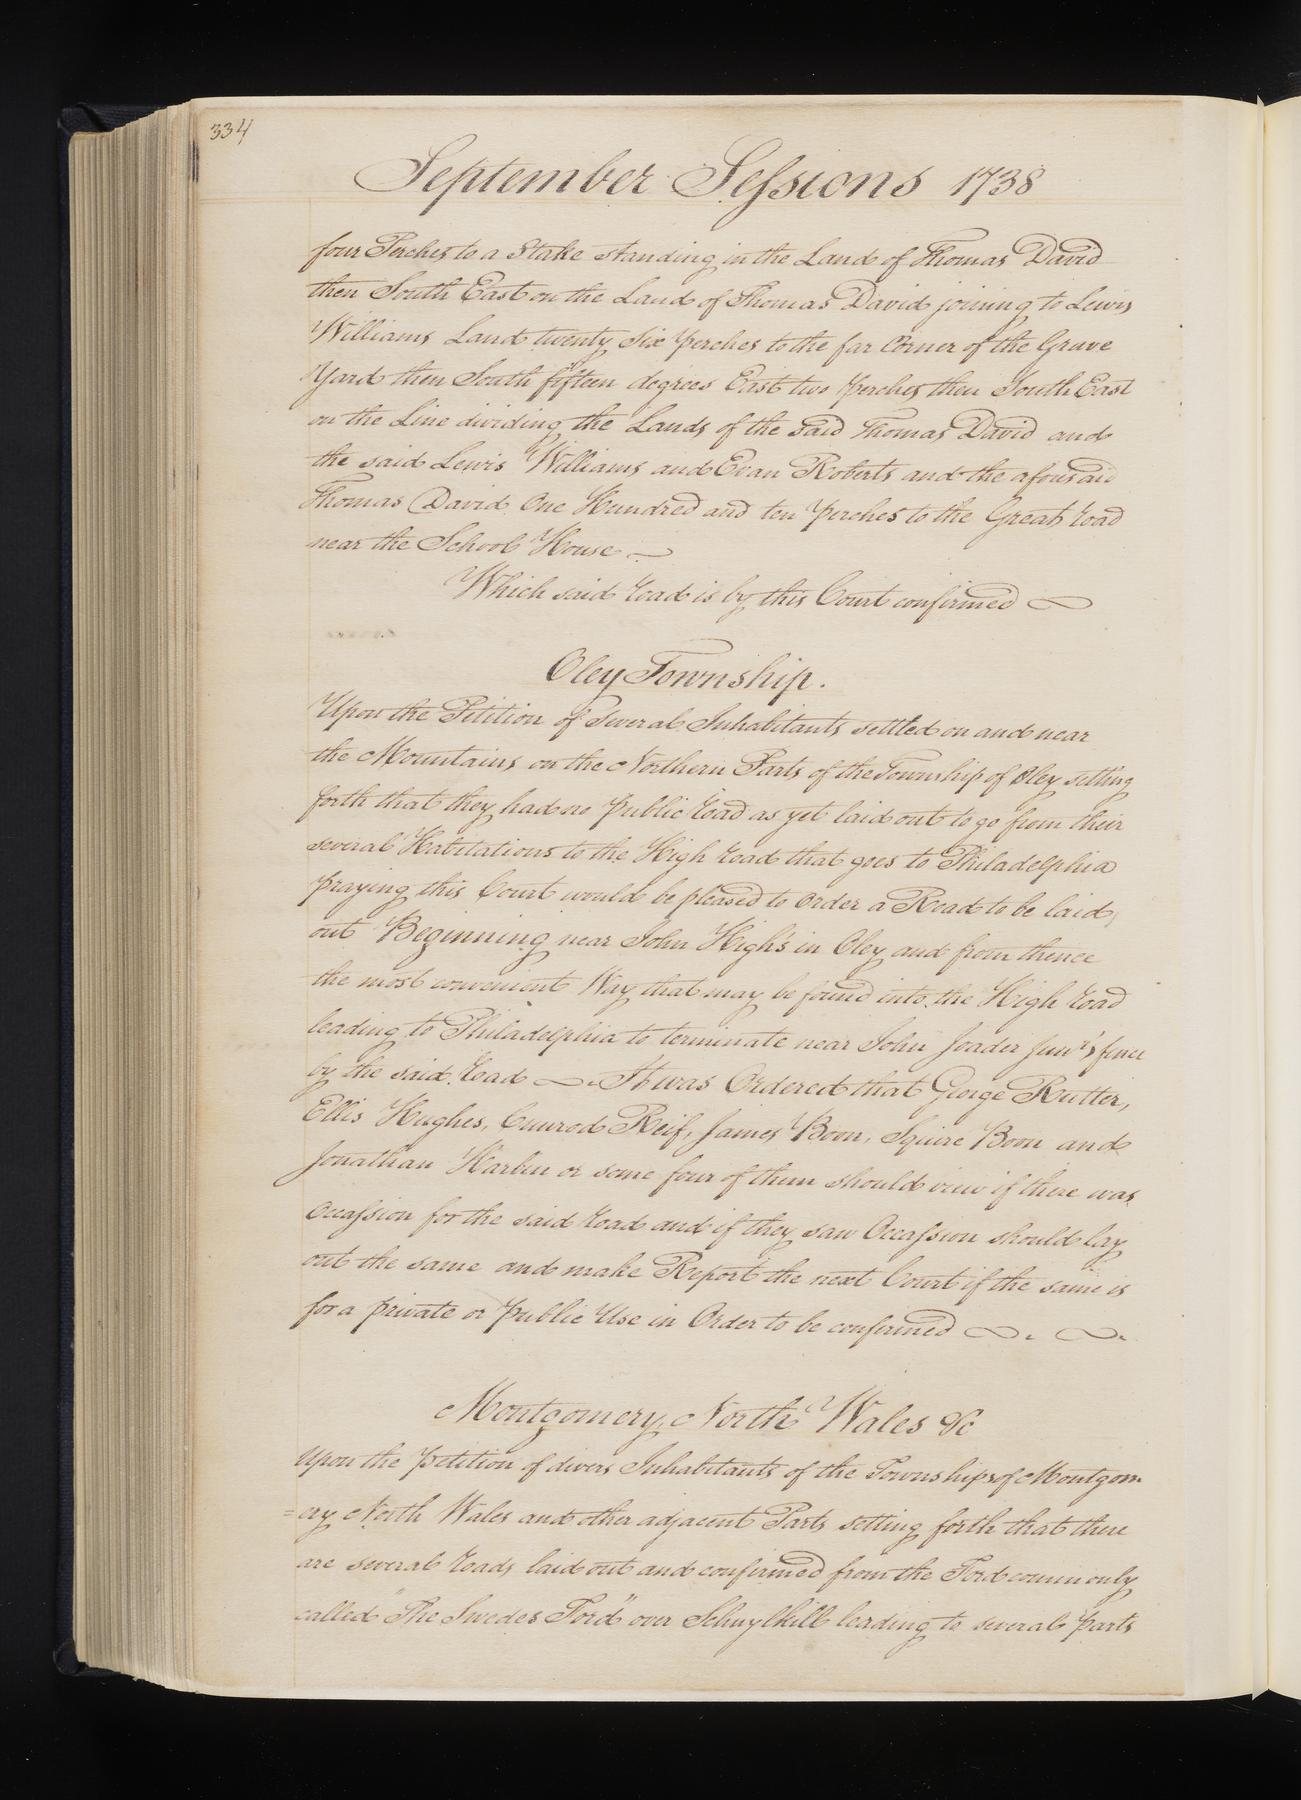 334
September Sessions 1738
four Perches to a Stake standing in the Land of Thomas David
then South East on the Land of Thomas David joining to Lewis
Williams Land twenty Six perches to the far Corner of the Grave
Yard then South fifteen degrees East two perches then South East
on the Line dividing the Lands of the said Thomas David and
the said Lewis Williams and Evan Roberts and the aforesaid
Thomas David One Hundred and ten perches to the Great road
near the School House
Which said road is by this Court confirmed
Oley Township.
Upon the Petition of Several Inhabitants settled on and near
the Mountains on the Northern Parts of the Township of Oley setting
forth that they had no public road as yet laid out to go from their
several Habitations to the High road that goes to Philadelphia
praying this Court would be pleased to order a Road to be laid
out Beginning near John High's in Oley and from thence
the most convenient Way that may be found into the High road
leading to Philadelphia to terminate near John Joader Junr's fence
by the said road It was Ordered that George Rutter,
Ellis Hughes, Cunrod Reif, James Boon, Squire Boon and
Jonathan Harbin or some four of them should view if there was
Occassion for the said road and if they saw Occassion should lay
out the same and make Report the next Court if the same is
for a private or public Use in Order to be confirmed
Montgomery, North Wales &c
Upon the Petition of divers Inhabitants of the Townships of Montgom
=ery North Wales and other adjacent Parts setting forth that there
are several roads laid out and confirmed from the Ford commonly
called "The Swedes Ford" over Schuylkill leading to several parts